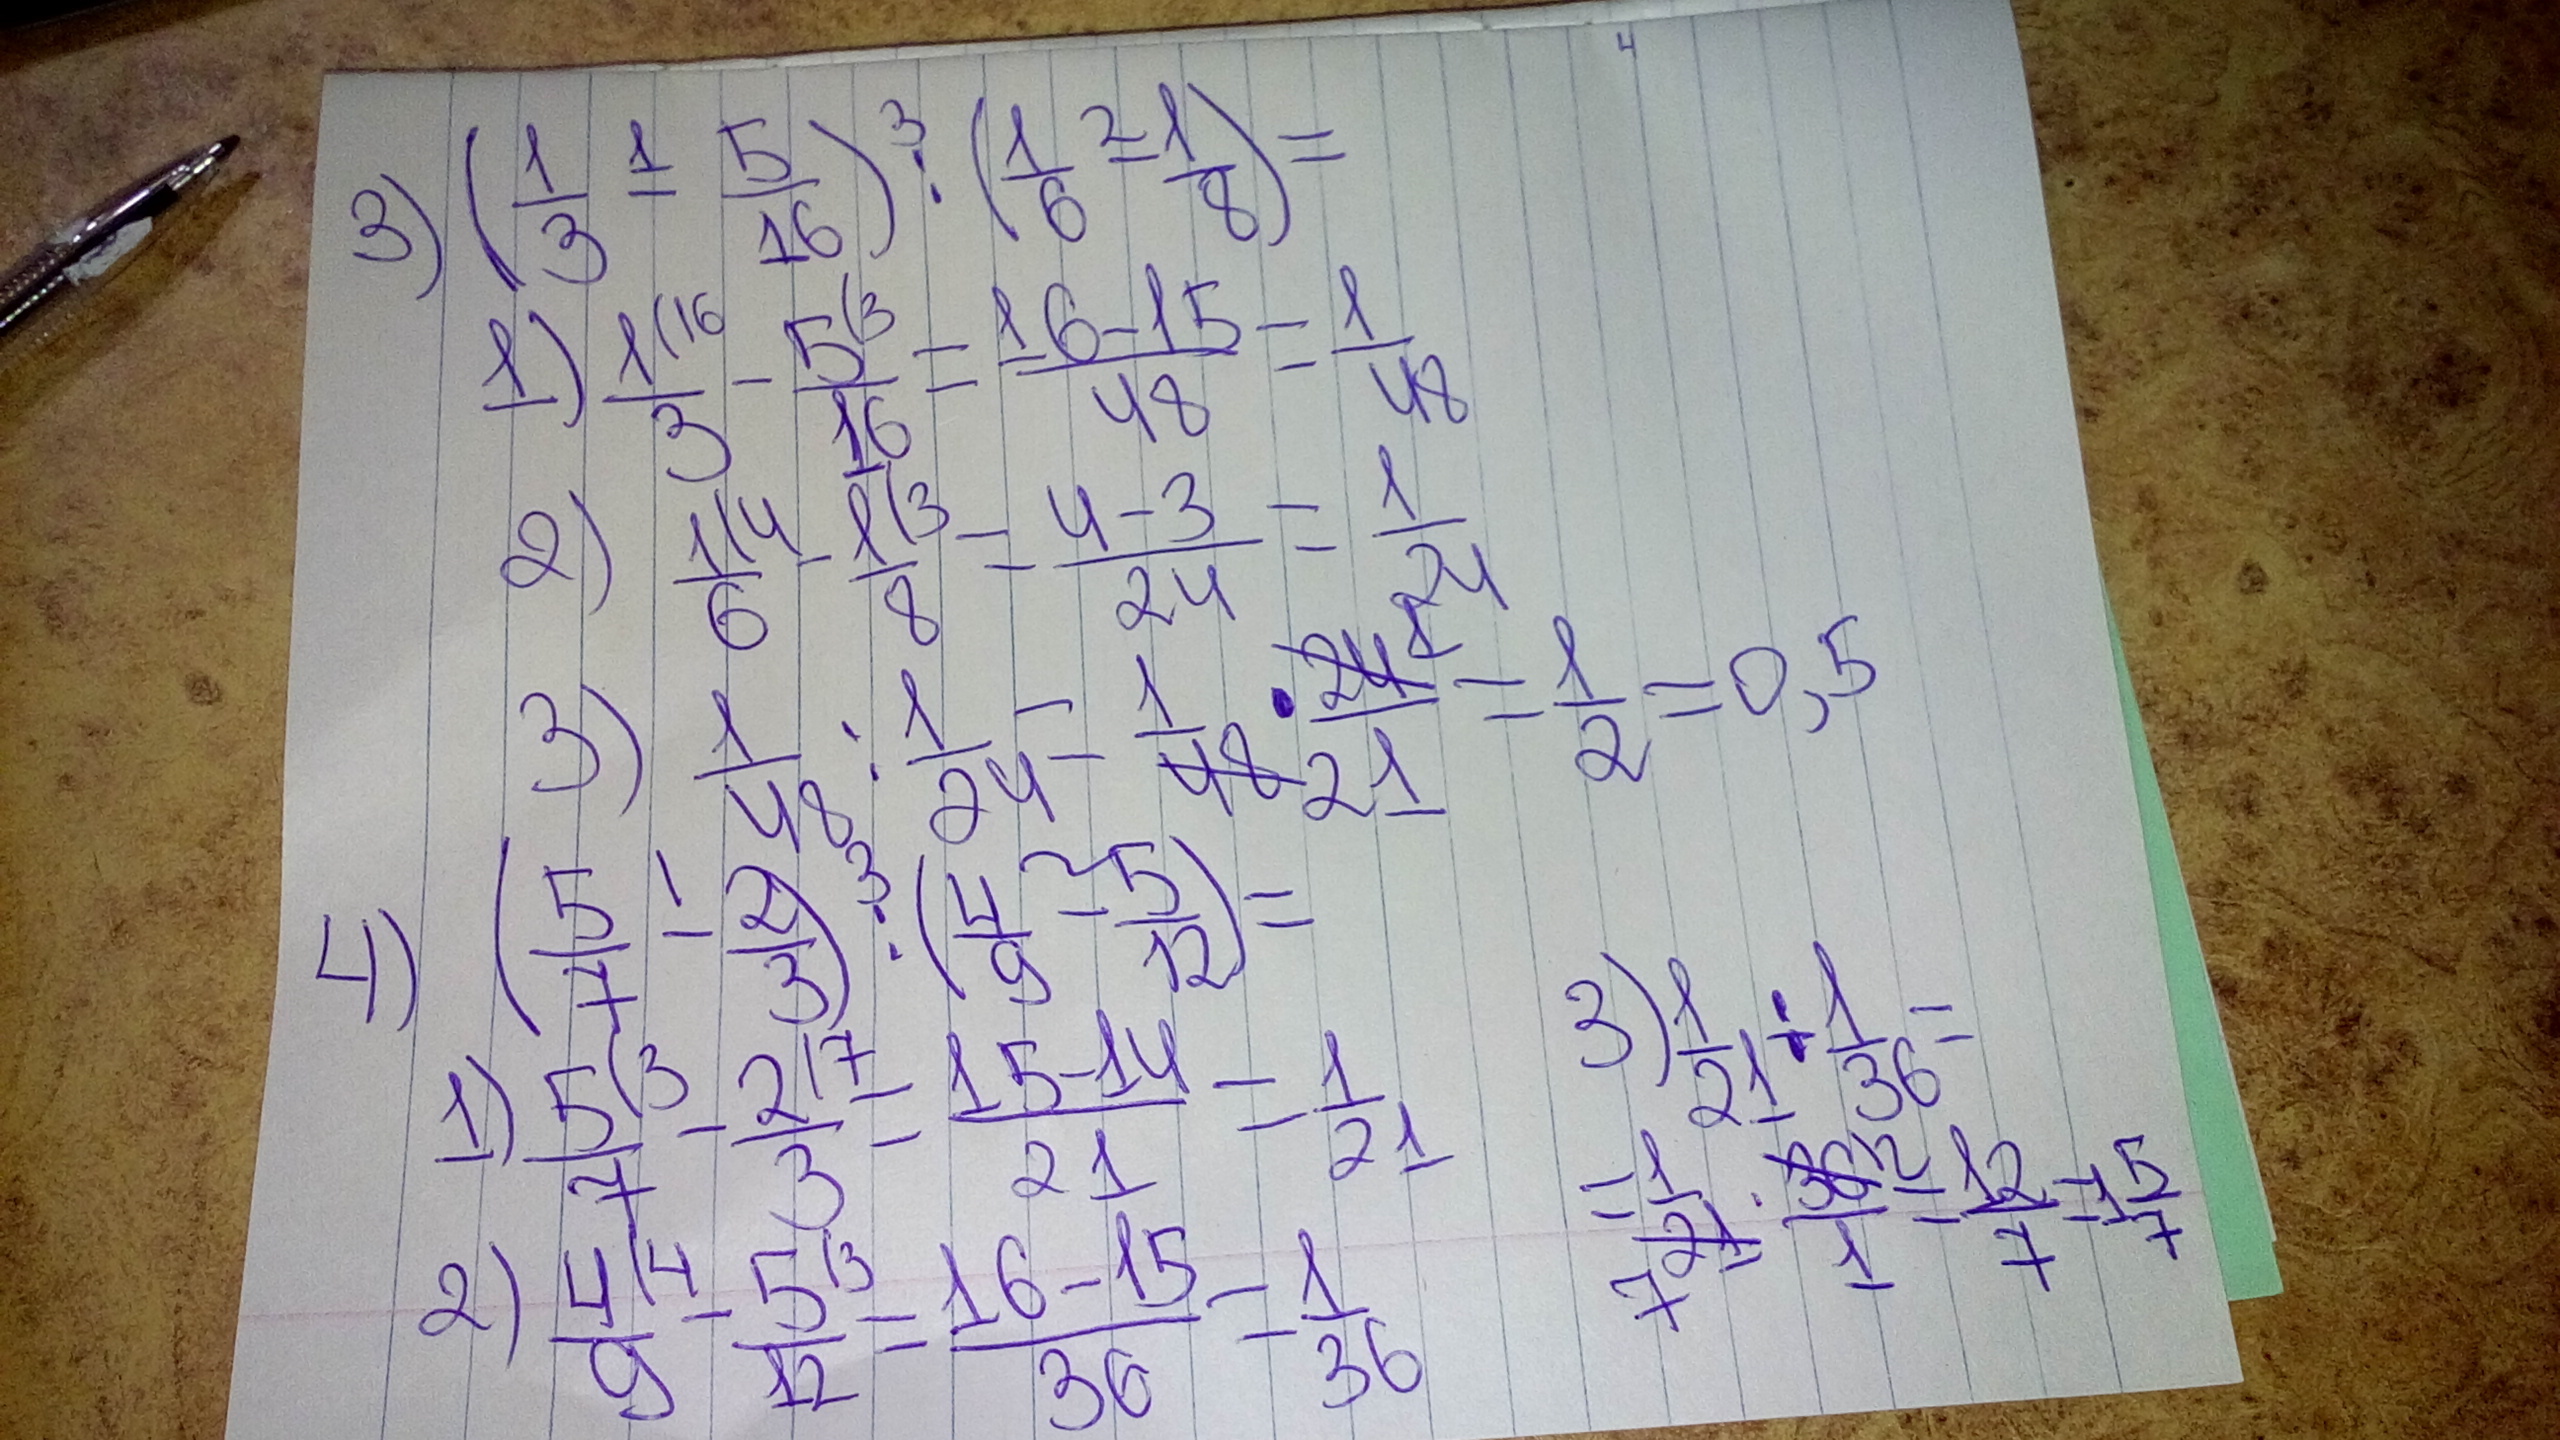 4
3) (1/3 1 - 5/16) 3 : (1/6 2 - 1/8) =
1) 1(16/3 - 5(3/16 = 16-15/48 = 1/48
2) 1(4/6 - 1(3/8 = 4-3/24 = 1/24
3) 1/48 : 1/24 = 1/48 2 · 24 1/1 = 1/2 = 0,5
4) (5/7 1 - 2/3) 3 : (4/9 2 - 5/12) =
1) 5(3/7 - 2(7/3 = 15-14/21 = 1/21
2) 4(4/9 - 5(3/12 = 16-15/36 = 1/36
3) 1/21 : 1/36 =
= 1/21 7 · 36 12/1 = 12/7 = 1 5/7